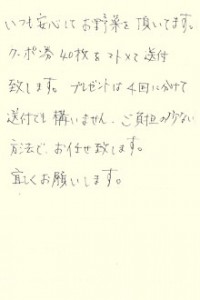 いつも安心してお野菜を頂いてます。
クーポン券40枚をマトメて送付
致します。プレゼントは4回に分けて
送付でも構いません、ご負担の少ない
方法で、お任せ致します。
宜しくお願いします。